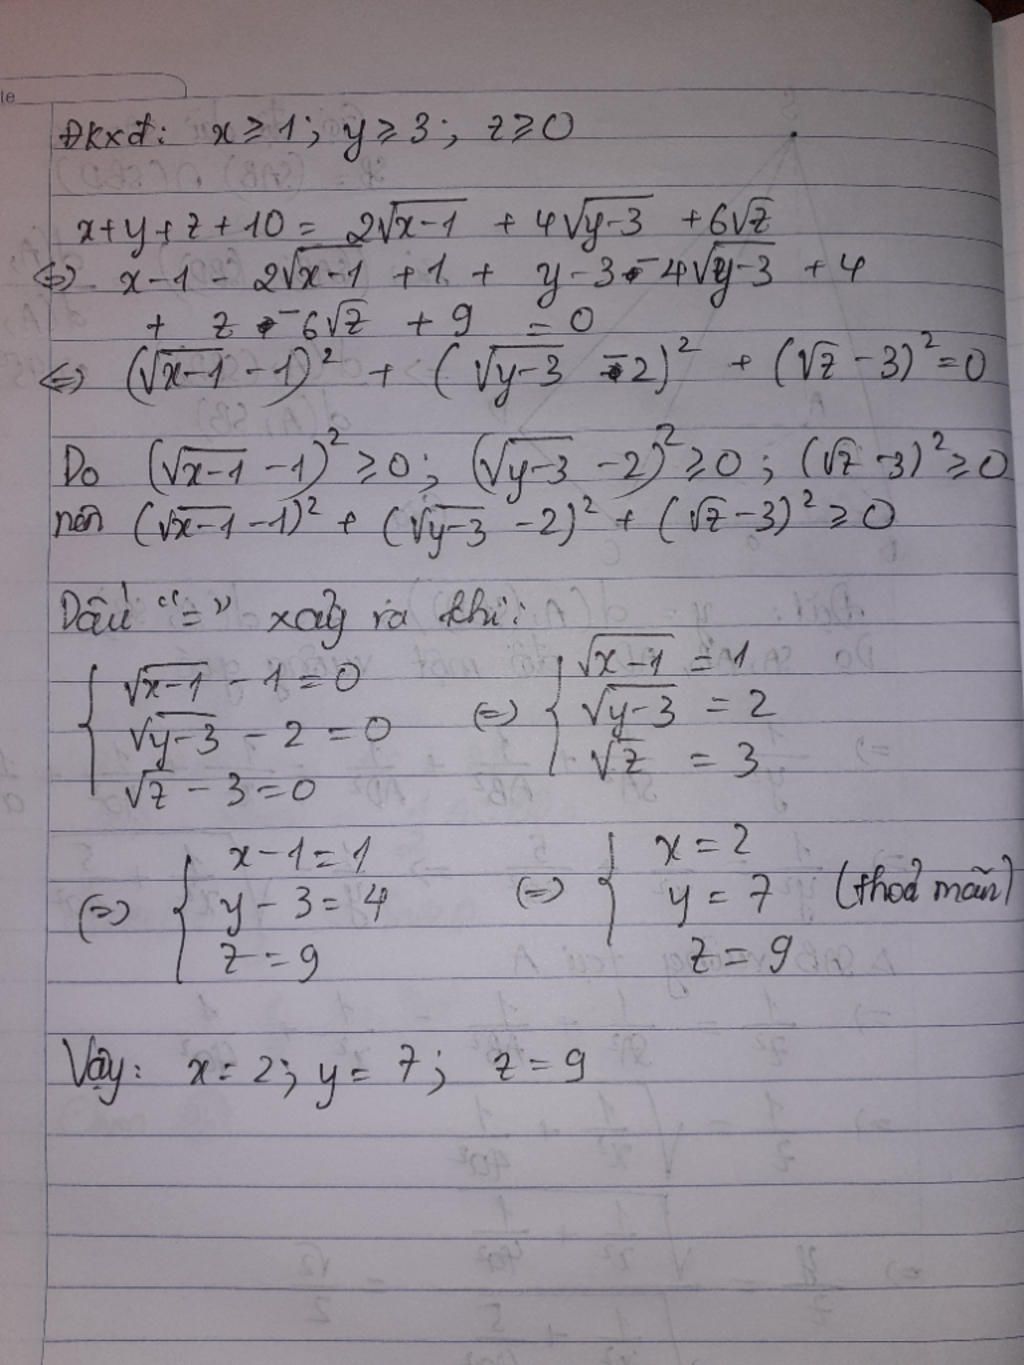 ĐKxđ: x ≥ 1; y ≥ 3; z ≥ 0
x+y+z+10 = 2√(x-1) + 4√(y-3) + 6√z
<=> x-1 - 2√(x-1) + 1 + y-3 - 4√(y-3) + 4
+ z - 6√z + 9 = 0
<=> (√(x-1) - 1)² + (√(y-3) - 2)² + (√z - 3)² = 0
Do (√(x-1) - 1)² ≥ 0; (√(y-3) - 2)² ≥ 0; (√z - 3)² ≥ 0
nên (√(x-1) - 1)² + (√(y-3) - 2)² + (√z - 3)² ≥ 0
Dấu "=" xảy ra khi:
{ √(x-1) - 1 = 0
√(y-3) - 2 = 0
√z - 3 = 0
<=> { √(x-1) = 1
√(y-3) = 2
√z = 3
<=> { x-1 = 1
y-3 = 4
z = 9
<=> { x = 2
y = 7 (thoả mãn)
z = 9
Vậy: x = 2; y = 7; z = 9